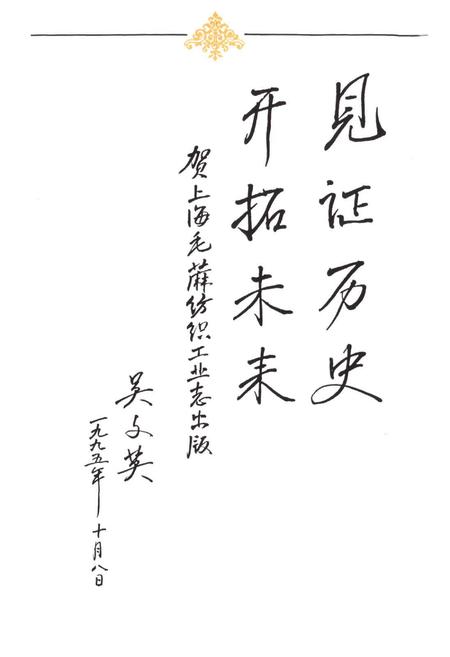 见证历史
开拓未来
贺上海毛麻纺织工业志出版
吴文英
一九九五年十月八日